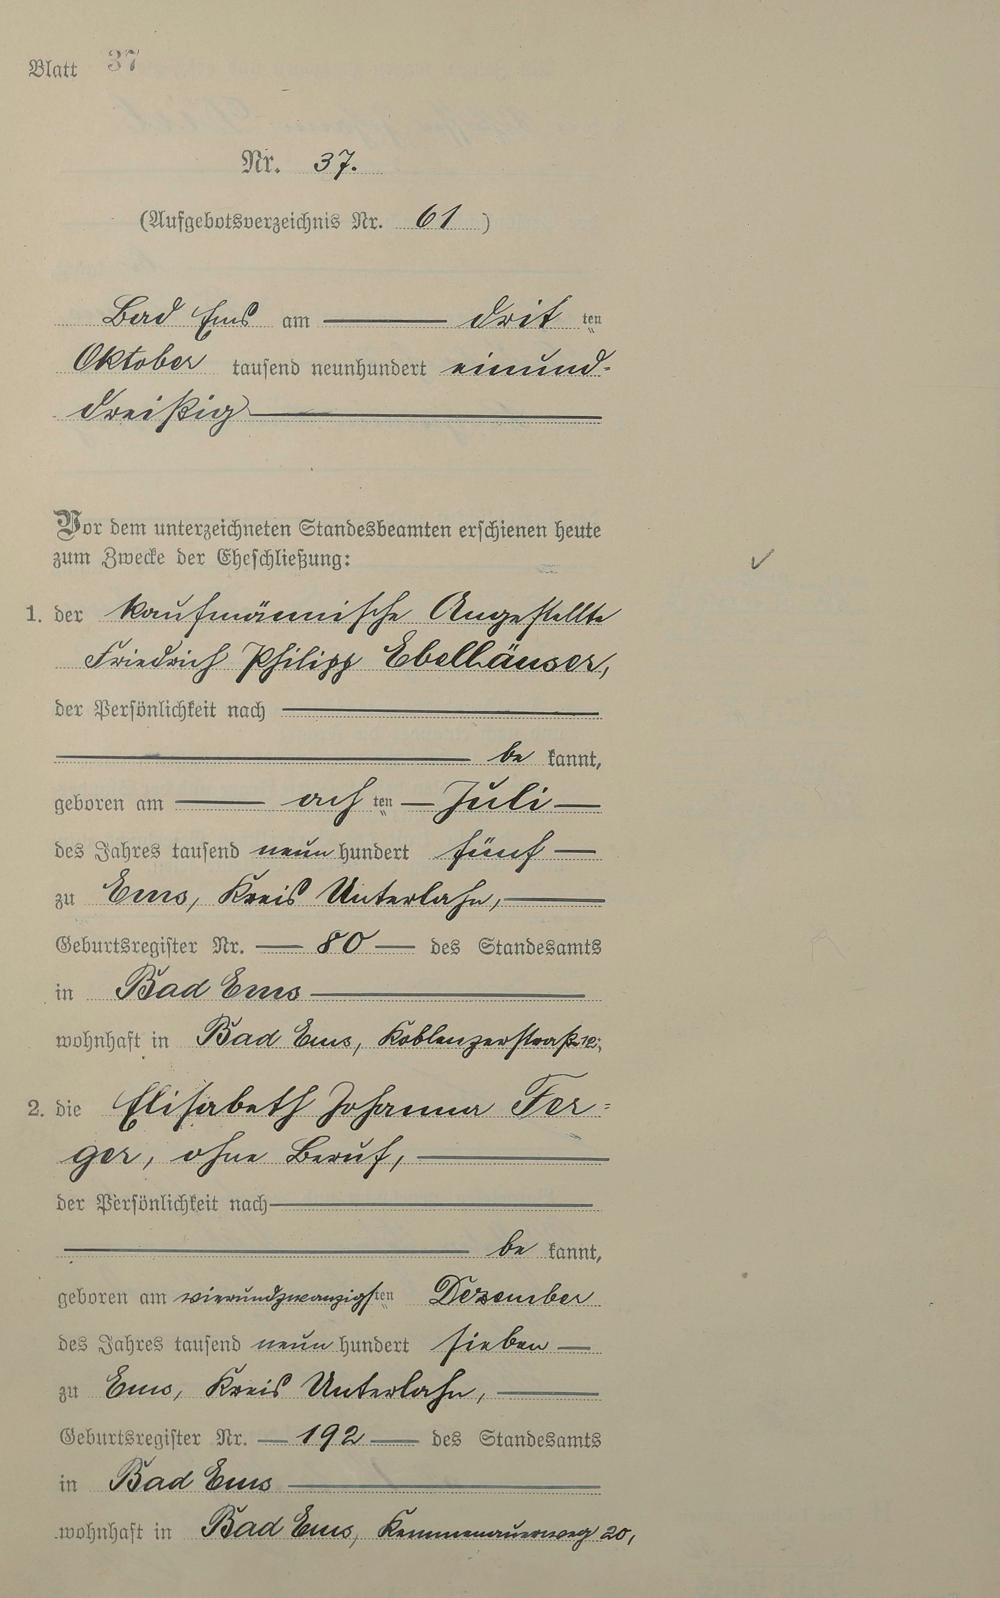 Blatt 37
Nr. 37.
(Aufgebotsverzeichnis Nr. 61)
Bad Ems am drit ten
Oktober tausend neunhundert einund-
dreißig
Vor dem unterzeichneten Standesbeamten erschienen heute
zum Zwecke der Eheschließung:
1. der kaufmännische Angestellte
Friedrich Philipp Ebelhäuser,
der Persönlichkeit nach
be kannt,
geboren am ach ten Juli
des Jahres tausend neun hundert fünf
zu Ems, Kreis Unterlahn,
Geburtsregister Nr. 80 des Standesamts
in Bad Ems
wohnhaft in Bad Ems, Koblenzerstraße
2. die Elisabeth Johanna Fer=
ger, ohne Beruf,
der Persönlichkeit nach
be kannt,
geboren am vierundzwanzigsten Dezember
des Jahres tausend neun hundert sieben
zu Ems, Kreis Unterlahn,
Geburtsregister Nr. 192 des Standesamts
in Bad Ems
wohnhaft in Bad Ems, Kemmenauerweg 20,